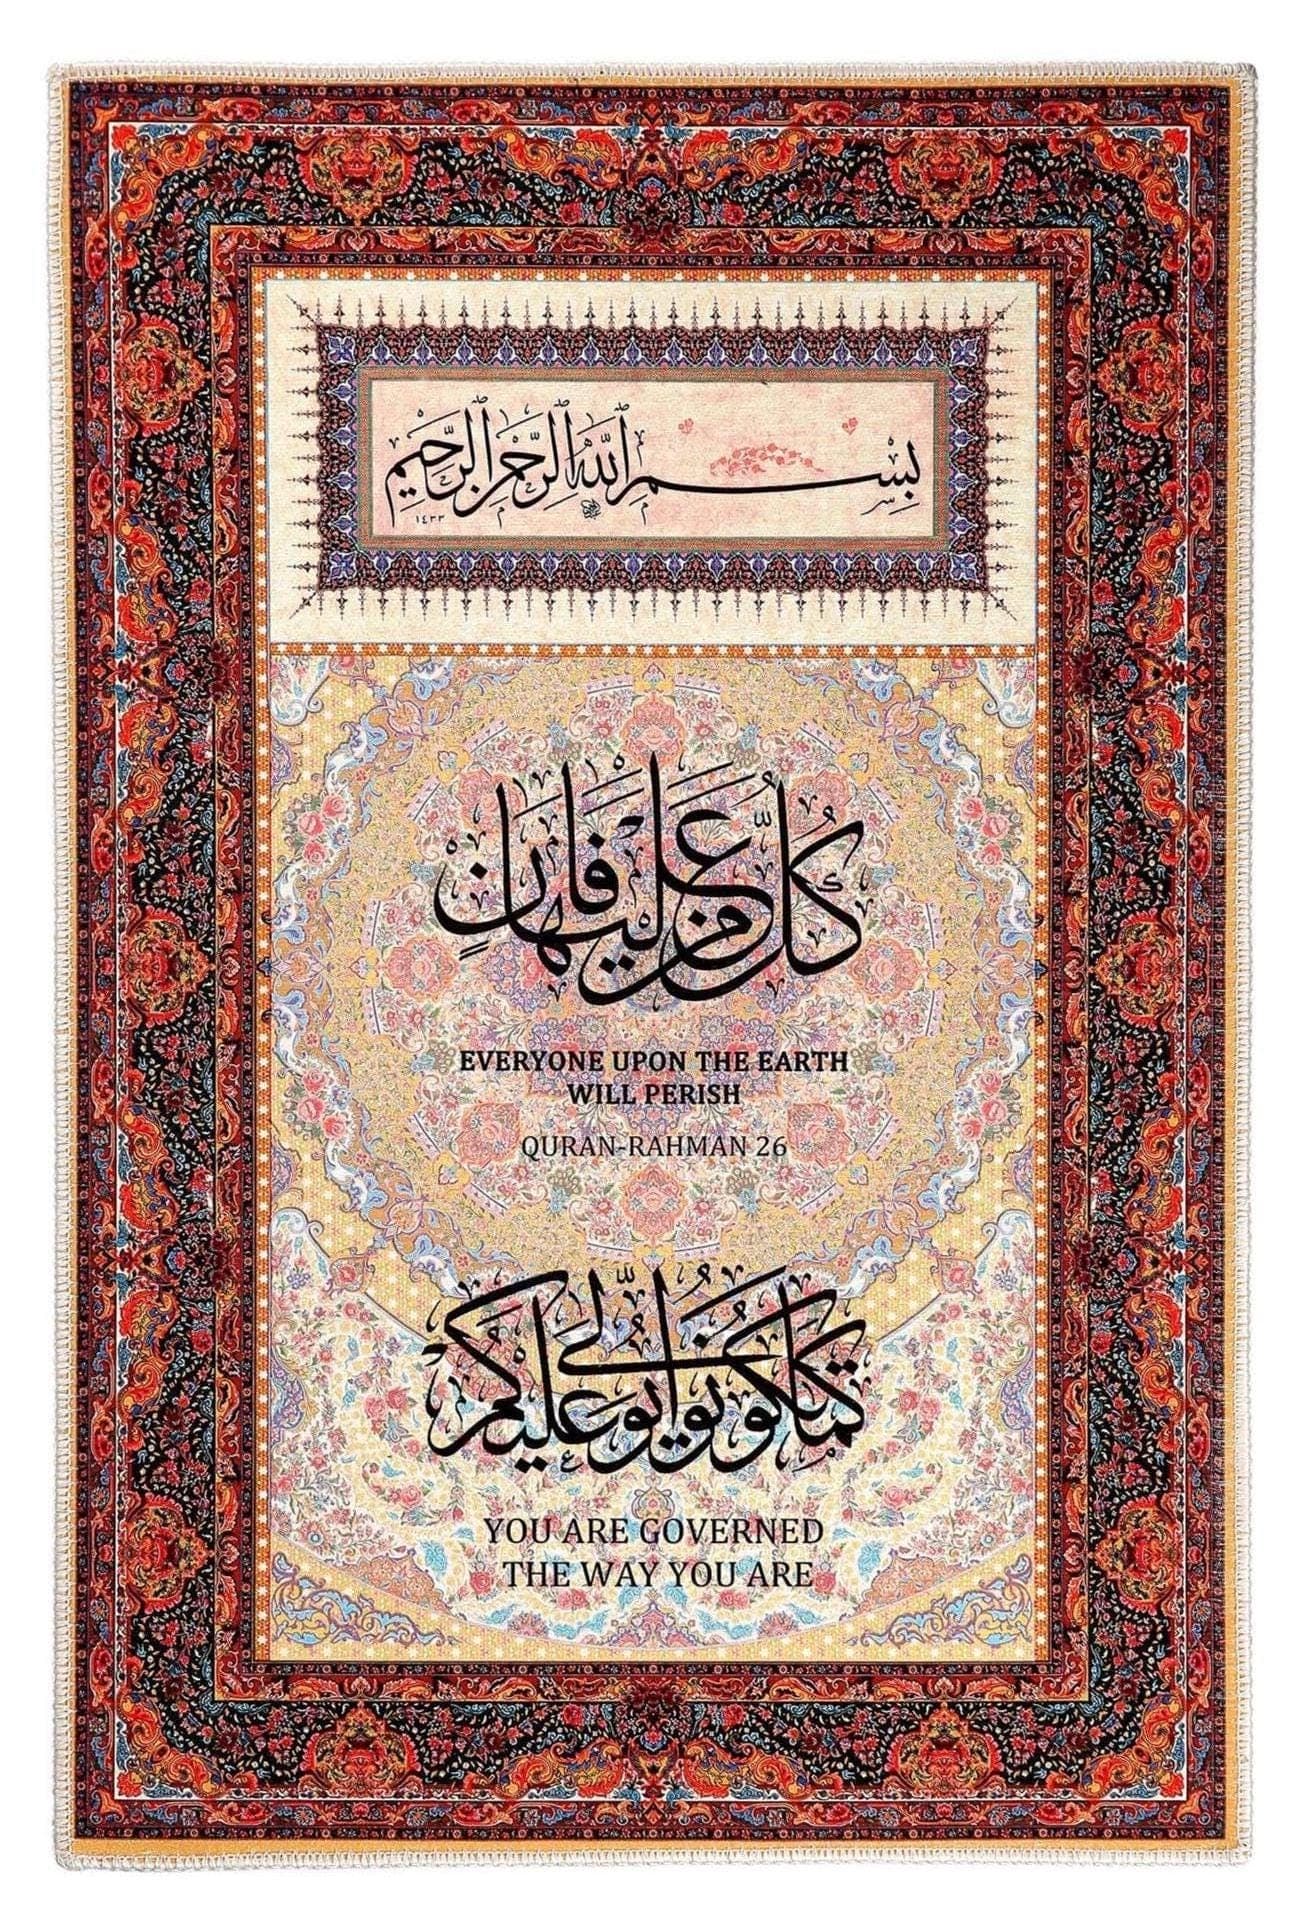 بِسْمِ ٱللَّهِ ٱلرَّحْمٰنِ ٱلرَّحِيمِ
١٤٣٣
كُلُّ مَنْ عَلَيْهَا فَانٍ
EVERYONE UPON THE EARTH
WILL PERISH
QURAN-RAHMAN 26
كَمَا تَكُونُوا يُوَلَّى عَلَيْكُمْ
YOU ARE GOVERNED
THE WAY YOU ARE